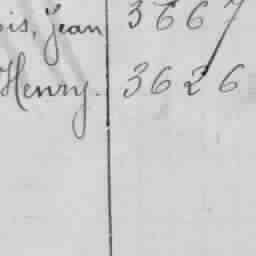 ois, Jean 3667
Henry. 3626